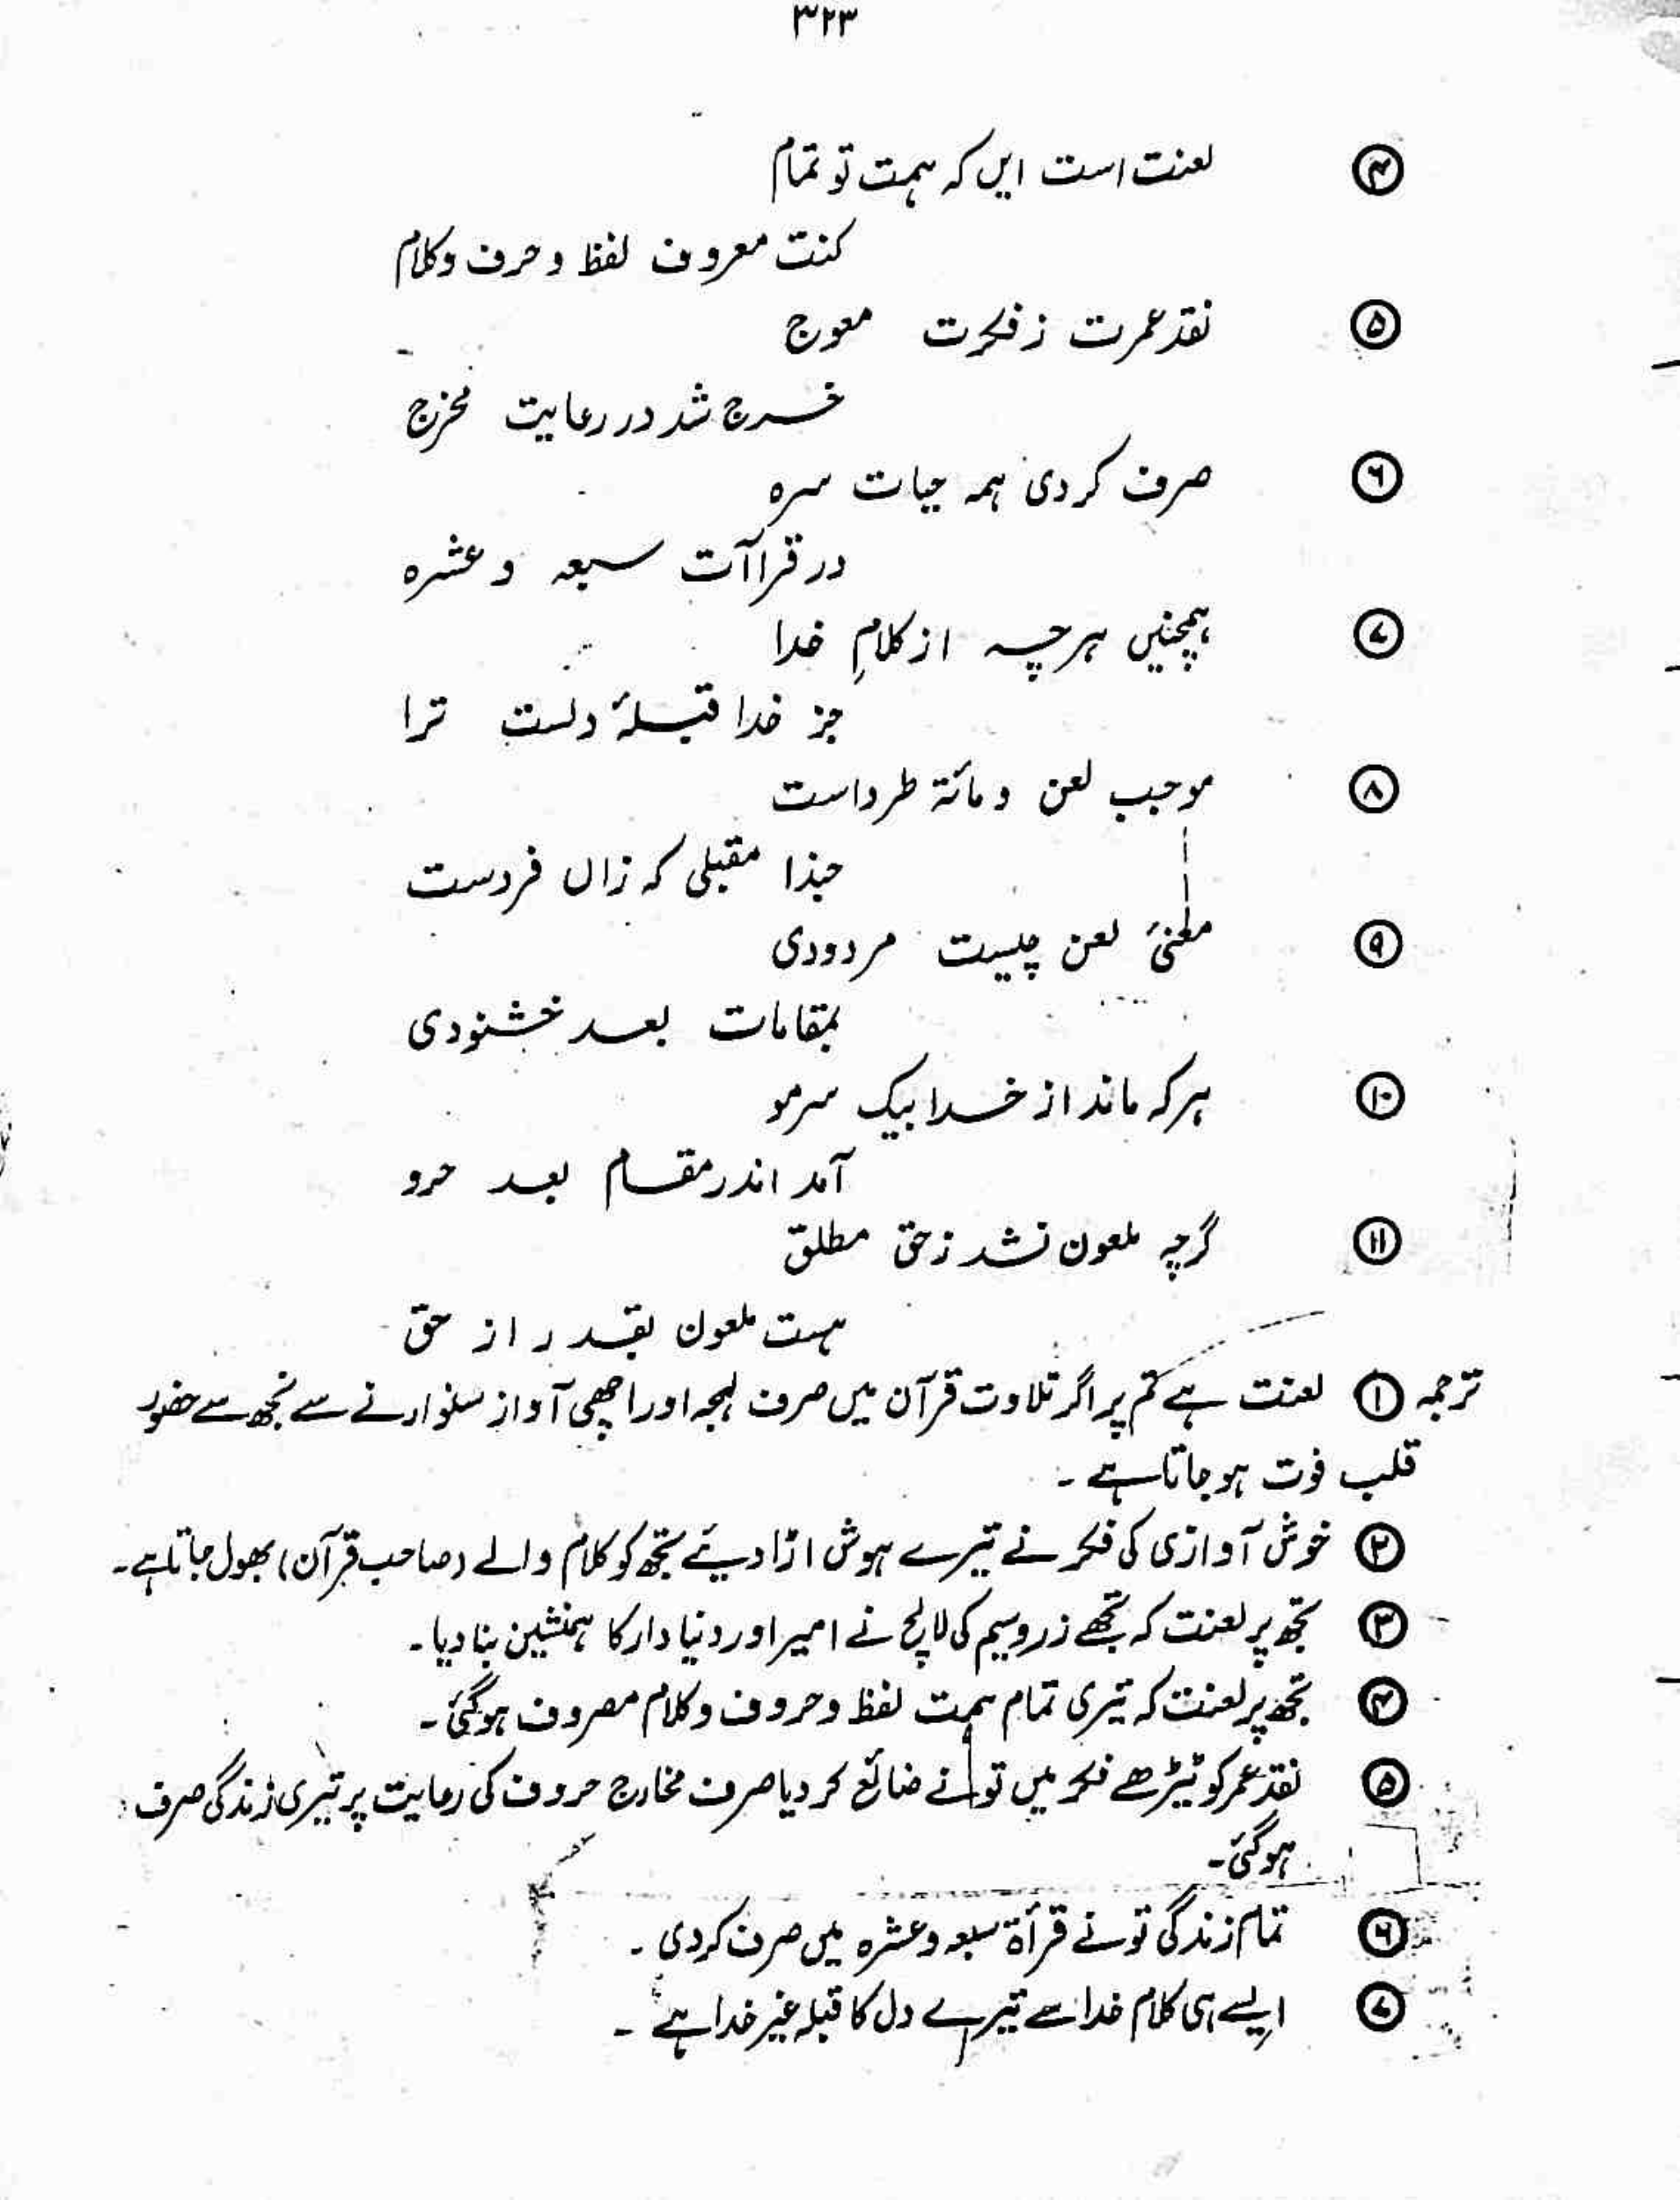 ۳۲۳
۴ لعنت است ایں کہ ہمت تو تمام
کنت معروف لفظ و حرف و کلام
۵ نقد عمرت ز فکرت معوج
خرج شد در رعایت مخرج
۶ صرف کردی ہمہ حیات سرہ
در قراآت سبعہ و عشرہ
۷ ہمچنیں ہرچہ از کلامِ خدا
جز خدا قبلۂ دلست ترا
۸ موجب لعن و مائۃ طرداست
حبذا مقبلی کہ زاں فردست
۹ معنیٔ لعن چیست مردودی
بمقامات بعد خشنودی
۱۰ ہرکہ ماند از خدا بیک سرمو
آمد اندر مقام بعد حرو
۱۱ گرچہ ملعون نشد زحق مطلق
ہست ملعون بقدر از حق
ترجمہ ۱ لعنت ہے تم پر اگر تلاوت قرآن میں صرف لہجہ اور اچھی آواز سنوارنے سے تجھ سے حضور
قلب فوت ہوجاتا ہے ۔
۲ خوش آوازی کی فکر نے تیرے ہوش اڑا دیئے تجھ کو کلام والے (صاحب قرآن) بھول جاتا ہے۔
۳ تجھ پر لعنت کہ تجھے زروسیم کی لالچ نے امیر اور دنیا دار کا ہمنشین بنا دیا ۔
۴ تجھ پر لعنت کہ تیری تمام ہمت لفظ و حروف و کلام مصروف ہوگئی ۔
۵ نقد عمر کو ٹیڑھے فکر میں تو نے ضائع کر دیا صرف مخارج حروف کی رعایت پر تیری زندگی صرف
ہوگئی۔
۶ تمام زندگی تو نے قرأۃ سبعہ و عشرہ میں صرف کردی ۔
۷ ایسے ہی کلام خدا سے تیرے دل کا قبلہ غیر خدا ہے ۔